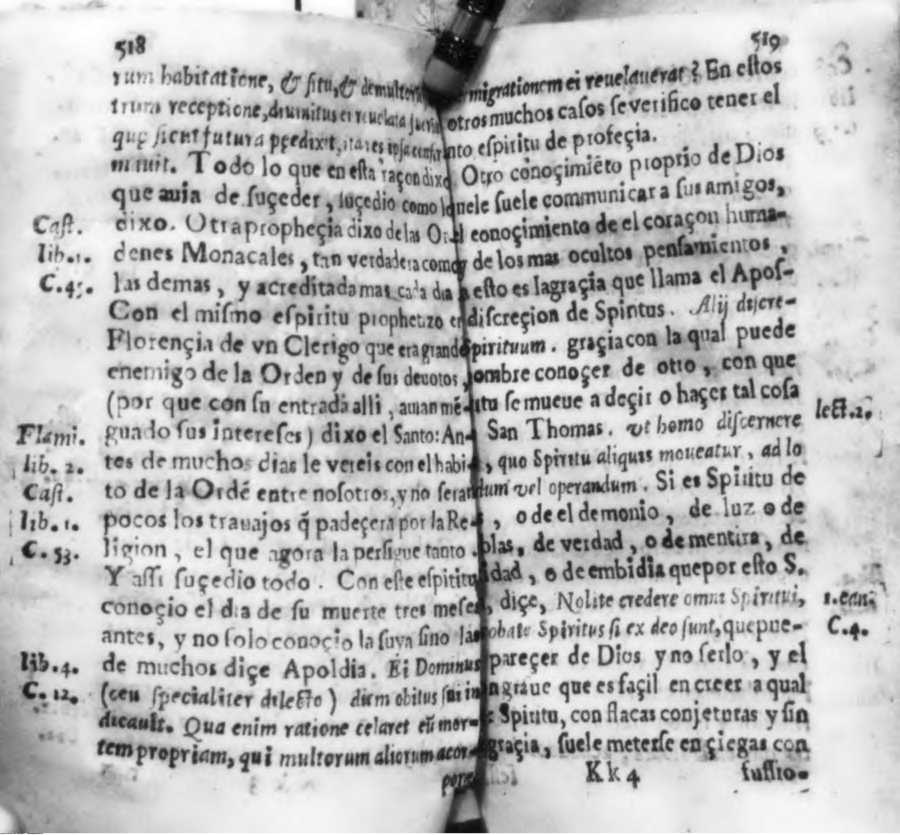 518
rum habitatione, & situ, & de multorū
trum receptione, divinitus ei reuelata
quę sicut futura prędixit, ita res ipsa
muit. Todo lo que en esta raçon dixo
que auia de suçeder, suçedio como lo
dixo. Otra propheçia dixo de las Or
denes Monacales, tan verdadera como
las demas, y acreditada mas cada dia
Con el mismo espiritu prophetizo en
Florençia de vn Clerigo que era grande
enemigo de la Orden y de sus deuotos,
(por que con su entrada alli, auian mē-
guado sus intereses) dixo el Santo: An-
tes de muchos dias le vereis con el habi
to de la Ordē entre nosotros, y no seran
pocos los trauajos q̃ padeçera por la Re
ligion, el que agora la persigue tanto.
Y assi suçedio todo. Con este espiritu
conoçio el dia de su muerte tres meses
antes, y no solo conoçio la suya sino las
de muchos diçe Apoldia. Ei Dominus
(ceu specialiter dilecto) diem obitus sui in
dicauit. Qua enim ratione celaret eū mor-
tem propriam, qui multorum aliorum
Cast.
lib. 1.
C. 4.
Flami.
lib. 2.
Cast.
lib. 1.
C. 53.
lib. 4.
C. 12.
519
migrationem ei reuelauerat? En estos
otros muchos casos se verifico tener el
nto espiritu de profeçia.
Otro conoçimiēto proprio de Dios
nele suele communicar a sus amigos,
el conoçimiento de el coraçon huma-
y de los mas ocultos pensamientos,
esto es la graçia que llama el Apos-
discreçion de Spiritus. Alij discre-
Spirituum. graçia con la qual puede
ombre conoçer de otro, con que
ritu se mueue a deçir o haçer tal cosa
San Thomas. vt homo discernere
, quo Spiritu aliquis moueatur, ad lo
dum vel operandum. Si es Spiritu de
, o de el demonio, de luz o de
blas, de verdad, o de mentira, de
dad, o de embidia que por esto S.
, diçe, Nolite credere omni Spiritui,
obate Spiritus si ex deo sunt, que pue-
pareçer de Dios y no serlo, y el
graue que es façil en creer a qual
Spiritu, con flacas conjeturas y sin
graçia, suele meterse en çiegas con
Kk4 suffio-
lect. 2.
1. ean.
C. 4.